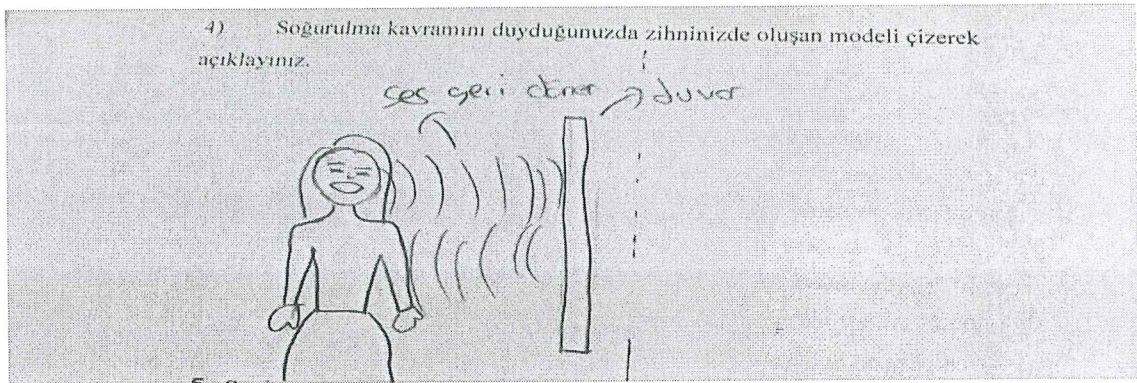 4) Soğurulma kavramını duyduğunuzda zihninizde oluşan modeli çizerek
açıklayınız.
ses geri döner duvar